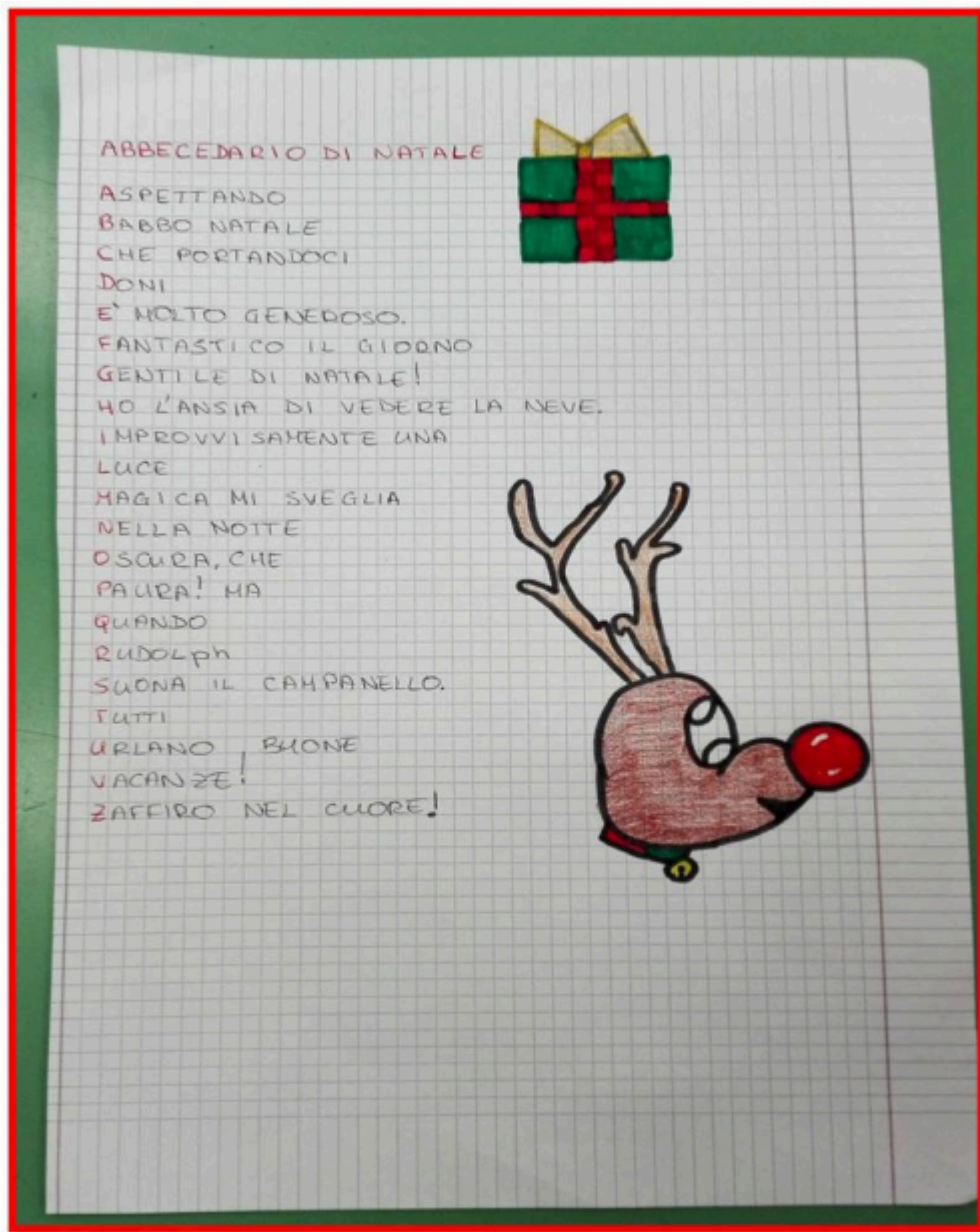 ABBECEDARIO DI NATALE
ASPETTANDO
BABBO NATALE
CHE PORTANDOCI
DONI
E' MOLTO GENEROSO.
FANTASTICO IL GIORNO
GENTILE DI NATALE!
HO L'ANSIA DI VEDERE LA NEVE.
IMPROVVISAMENTE UNA
LUCE
MAGICA MI SVEGLIA
NELLA NOTTE
OSCURA, CHE
PAURA! MA
QUANDO
RUDOLph
SUONA IL CAMPANELLO.
TUTTI
URLANO, BUONE
VACANZE!
ZAFFIRO NEL CUORE!